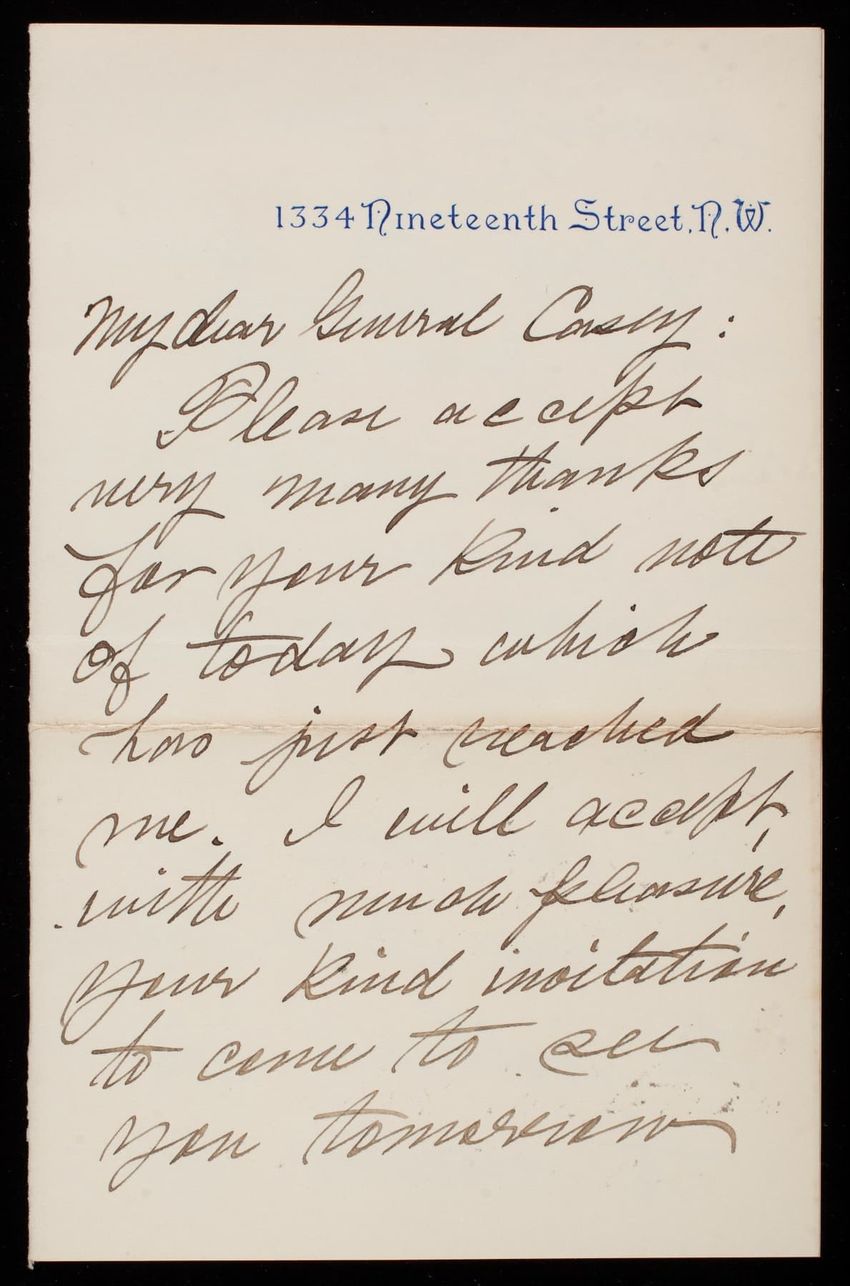 1334 Nineteenth Street, N.W.
My dear General Casey:
Please accept
very many thanks
for your kind note
of today which
has just reached
me. I will accept,
with much pleasure,
your kind invitation
to come to see
you tomorrow